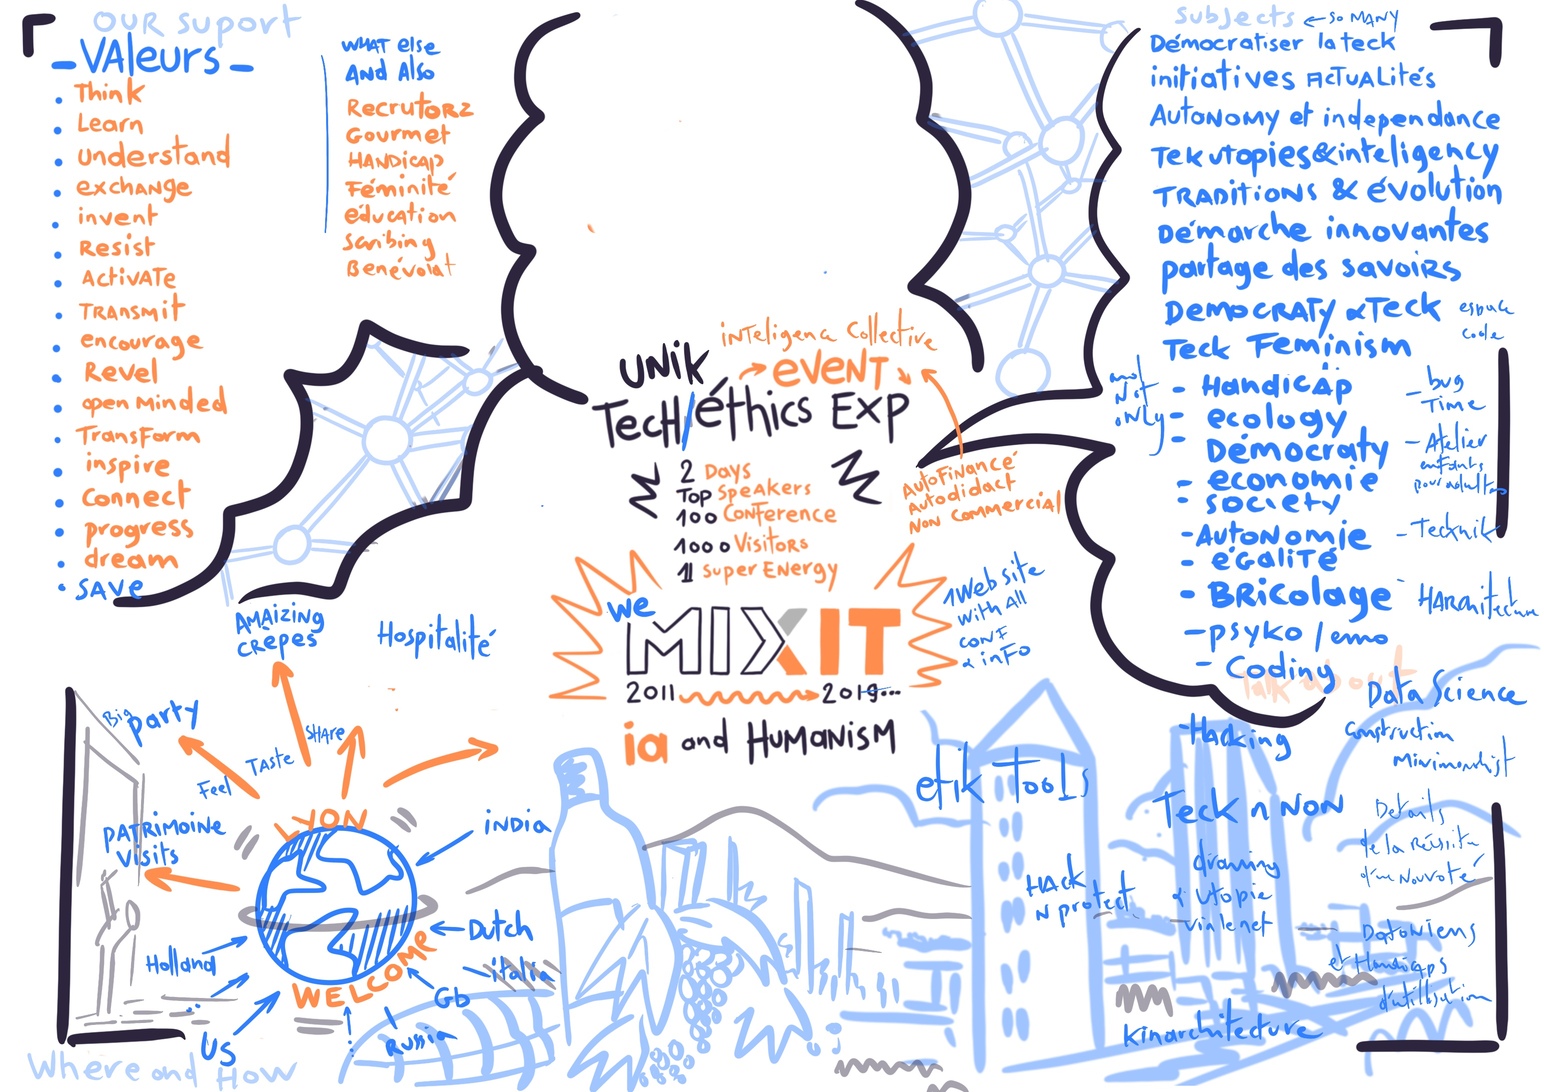 OUR suport
- VAleurs -
Think
Learn
understand
exchange
invent
Resist
ACTIVATE
TRANSMIT
encourage
Revel
open Minded
TransForm
inspire
connect
progress
dream
SAVE
WHAT else
And Also
RecrutoRz
Gourmet
HANDicap
Féminité
éducation
Scribing
Bénévolat
inTeligence Collective
UNiK
eVENT
TecH/éthics EXP
2 Days
Top Speakers
100 Conference
1000 Visitors
1 Super ENergy
AutoFinancé
Autodidact
Non Commercial
1 Web site
with All
conf
& inFo
we
MIXIT
2011 2019...
ia and HUMANiSM
Subjects ← so MANY
Démocratiser la teck
initiatives ACTUALités
AutoNoMY et independance
Tek utopies & inteligency
TRADITIONS & évolution
Démarche innovantes
partage des savoiRs
DEMOCRATY & Teck
espace
code
Teck Feminism
and
Not
only
- Handicap
- ecology
- Démocraty
- economie
- society
- AutoNomie
- éGALiTé
- BRicolage
- psyko / emo
- Coding
- Hacking
- bug
Time
- Atelier
enfants
pour adultes
- Technik
- HARchitecture
Talk about
Data Science
Construction
Minimalist
etik Tools
Teck n NON
Hack
N protect
drawing
& Utopie
via le net
Détails
de la Réussite
d'une Nouvoté
Datawiens
et Handicaps
d'utilisation
Kinarchitecture
AMAizing
crêpes
Hospitalité
Big party
Feel
Taste
SHARe
PATRiMOiNe
Visits
LYON
WELCOME
iNDiA
Dutch
itali
Gb
Russia
US
Holland
Where and How